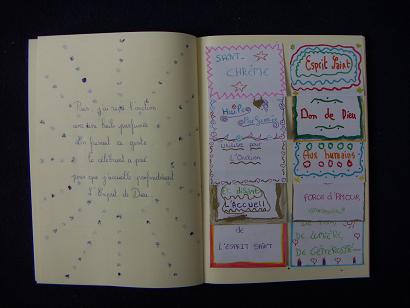 Puis j'ai reçu l'onction
avec une huile parfumée
En faisant ce geste
le célébrant a prié
pour que j'accueille profondément
l'Esprit de Dieu
SAINT-
CHRÊME
HuiLe
Parfumée
Utilisée pour
L'Onction
Et disant
L'ACCUEIL
de
L'ESPRIT SAINT
Esprit Saint
Don de Dieu
Aux humains
FORCE D'AMOUR
DE LUMIÈRE
DE GÉNÉROSITÉ